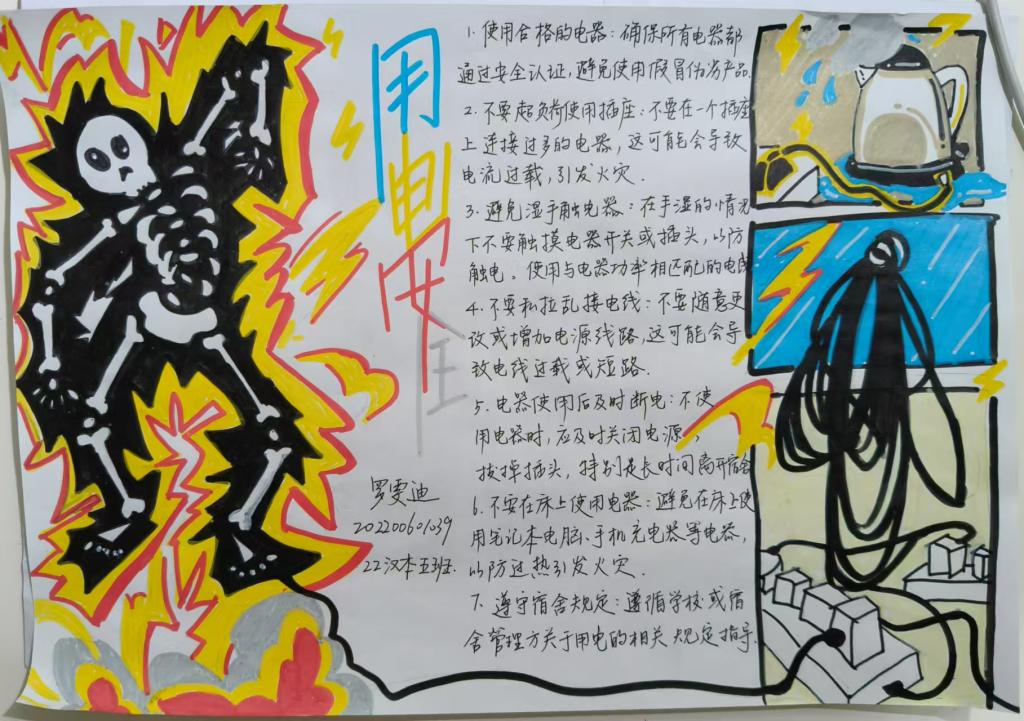 用电安全
1. 使用合格的电器：确保所有电器都
通过安全认证，避免使用假冒伪劣产品.
2. 不要超负荷使用插座：不要在一个插座
上连接过多的电器，这可能会导致
电流过载，引发火灾.
3. 避免湿手触电器：在手湿的情况
下不要触摸电器开关或插头，以防
触电。使用与电器功率相匹配的电线
4. 不要私拉乱接电线：不要随意更
改或增加电源线路，这可能会导
致电线过载或短路.
5. 电器使用后及时断电：不使
用电器时，应及时关闭电源，
拔掉插头，特别是长时间离开宿舍
6. 不要在床上使用电器：避免在床上使
用笔记本电脑、手机充电器等电器，
以防过热引发火灾.
7. 遵守宿舍规定：遵循学校或宿
舍管理方关于用电的相关规定指导.
罗雯迪
202200601039
22汉本五班.